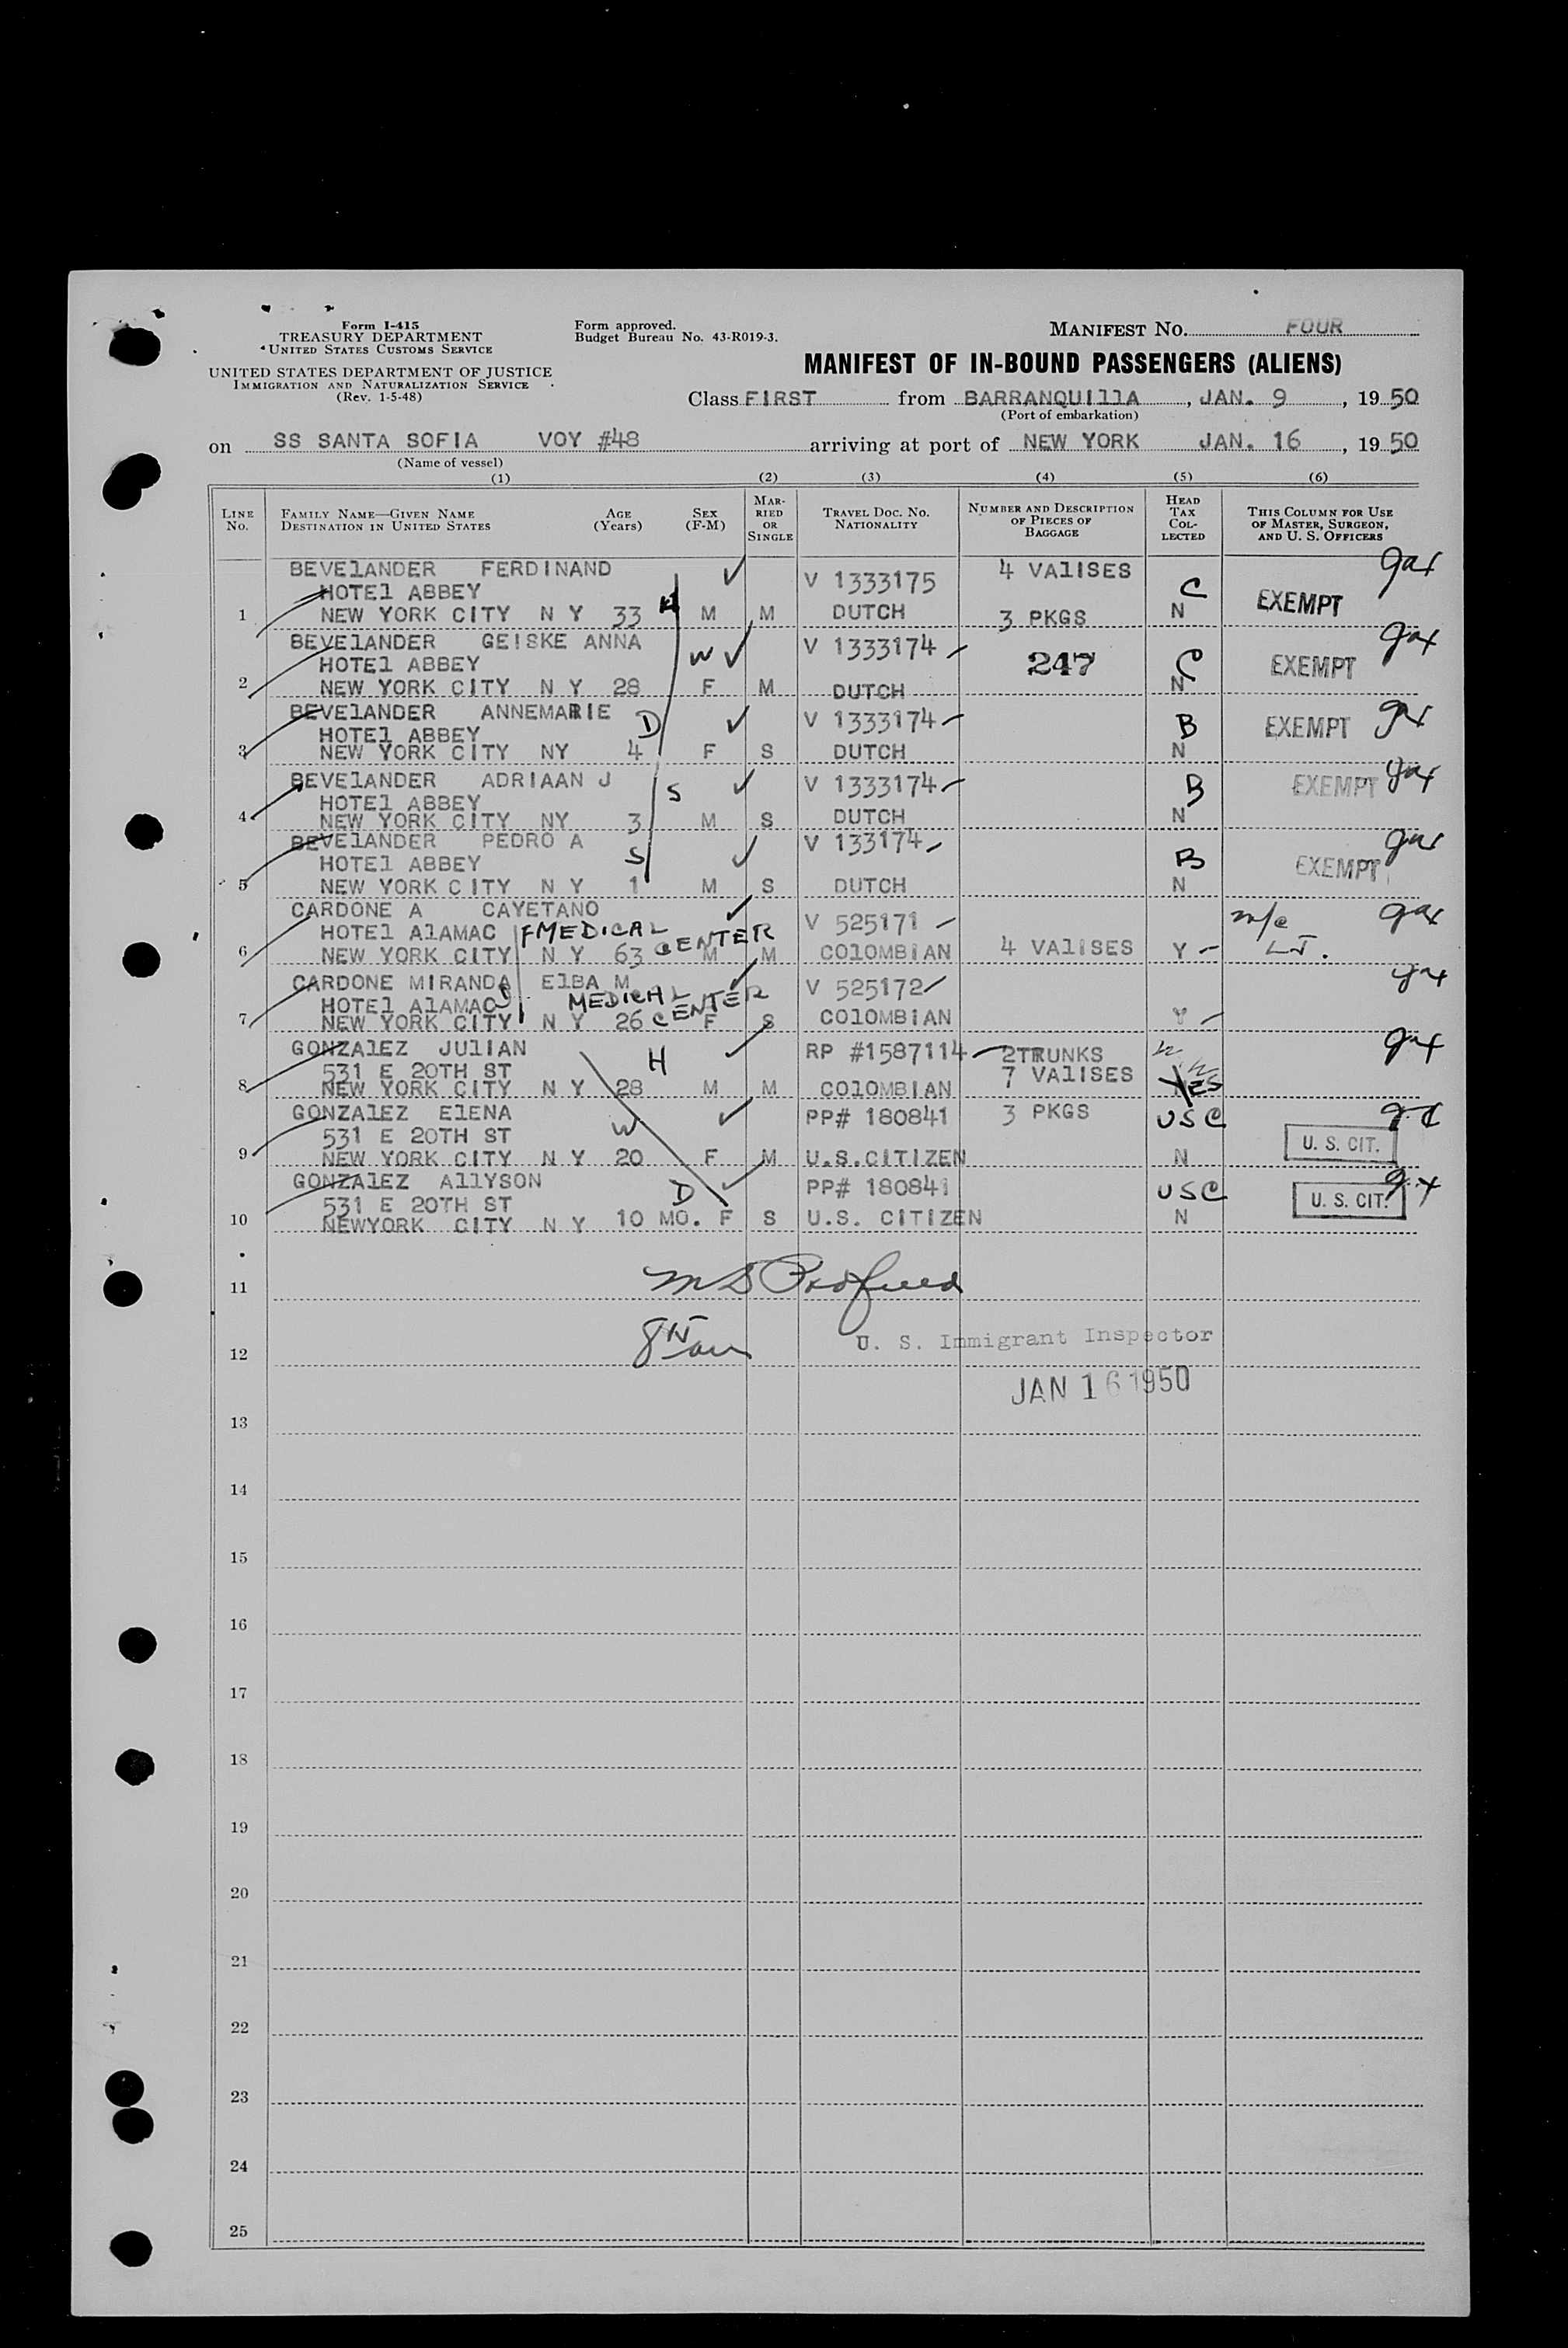 Form I-415
TREASURY DEPARTMENT
UNITED STATES CUSTOMS SERVICE
UNITED STATES DEPARTMENT OF JUSTICE
IMMIGRATION AND NATURALIZATION SERVICE
(Rev. 1-5-48)
Form approved.
Budget Bureau No. 43-R019-3.
MANIFEST NO. FOUR
MANIFEST OF IN-BOUND PASSENGERS (ALIENS)
Class FIRST from BARRANQUIllA, JAN. 9, 19 50
(Port of embarkation)
on SS SANTA SOFIA VOY #48 arriving at port of NEW YORK JAN. 16, 19 50
(Name of vessel)
(1) (2) (3) (4) (5) (6)
LINE NO.
FAMILY NAME—GIVEN NAME
DESTINATION IN UNITED STATES
AGE (Years)
SEX (F-M)
MARRIED OR SINGLE
TRAVEL DOC. NO.
NATIONALITY
NUMBER AND DESCRIPTION OF PIECES OF BAGGAGE
HEAD TAX COLLECTED
THIS COLUMN FOR USE OF MASTER, SURGEON, AND U. S. OFFICERS
BEVElANDER FERDINAND V 1333175 4 VAlISES
HOTEl ABBEY H C EXEMPT
1 NEW YORK CITY N Y 33 M M DUTCH 3 PKGS N
BEVElANDER GEISKE ANNA V 1333174
HOTEl ABBEY W 247 C EXEMPT
2 NEW YORK CITY N Y 28 F M DUTCH N
BEVElANDER ANNEMARIE V 1333174
HOTEl ABBEY D B EXEMPT
3 NEW YORK CITY NY 4 F S DUTCH N
BEVElANDER ADRIAAN J V 1333174
HOTEl ABBEY S B EXEMPT
4 NEW YORK CITY NY 3 M S DUTCH N
BEVElANDER PEDRO A V 133174
HOTEl ABBEY S B EXEMPT
5 NEW YORK CITY N Y 1 M S DUTCH N
CARDONE A CAYETANO V 525171 m/c
HOTEL AlAMAC F MEDICAL CENTER
6 NEW YORK CITY N Y 63 M M COlOMBIAN 4 VAlISES Y
CARDONE MIRANDA ElBA M V 525172
HOTEL AlAMAC MEDICAL CENTER
7 NEW YORK CITY N Y 26 F S COlOMBIAN Y
GONZAlEZ JUlIAN H RP #1587114 2TRUNKS
531 E 20TH ST 7 VALISES
8 NEW YORK CITY N Y 28 M M COlOMBIAN YES
GONZAlEZ ElENA PP# 180841 3 PKGS USC
531 E 20TH ST W U. S. CIT.
9 NEW YORK CITY N Y 20 F M U.S.CITIZEN N
GONZAlEZ AllYSON D PP# 180841 USC
531 E 20TH ST U. S. CIT.
10 NEWYORK CITY N Y 10 MO. F S U.S. CITIZEN N
11
12 U. S. Immigrant Inspector
JAN 16 1950
13
14
15
16
17
18
19
20
21
22
23
24
25